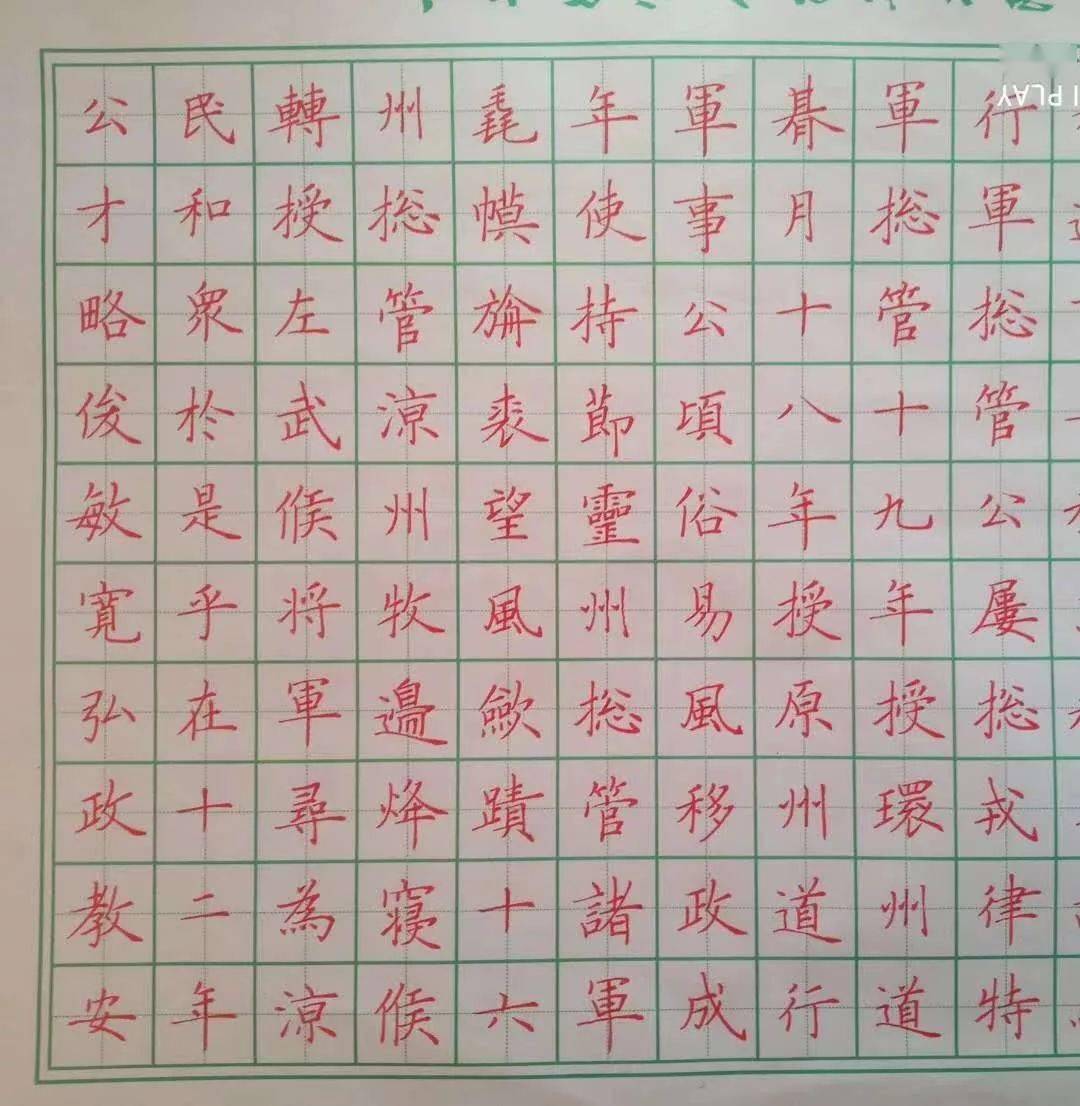 公才略俊敏寬弘政教安
民和衆於是乎在十二年
轉授左武候将軍尋為涼
州総管涼州牧邊烽寢候
毳幙旃裘望風歛蹟十六
年使持節靈州総管諸軍
軍事公頃俗易風移政成
朞月十八年授原州道行
軍総管十九年授環州道
行軍総管公屢総戎律特
PLAY